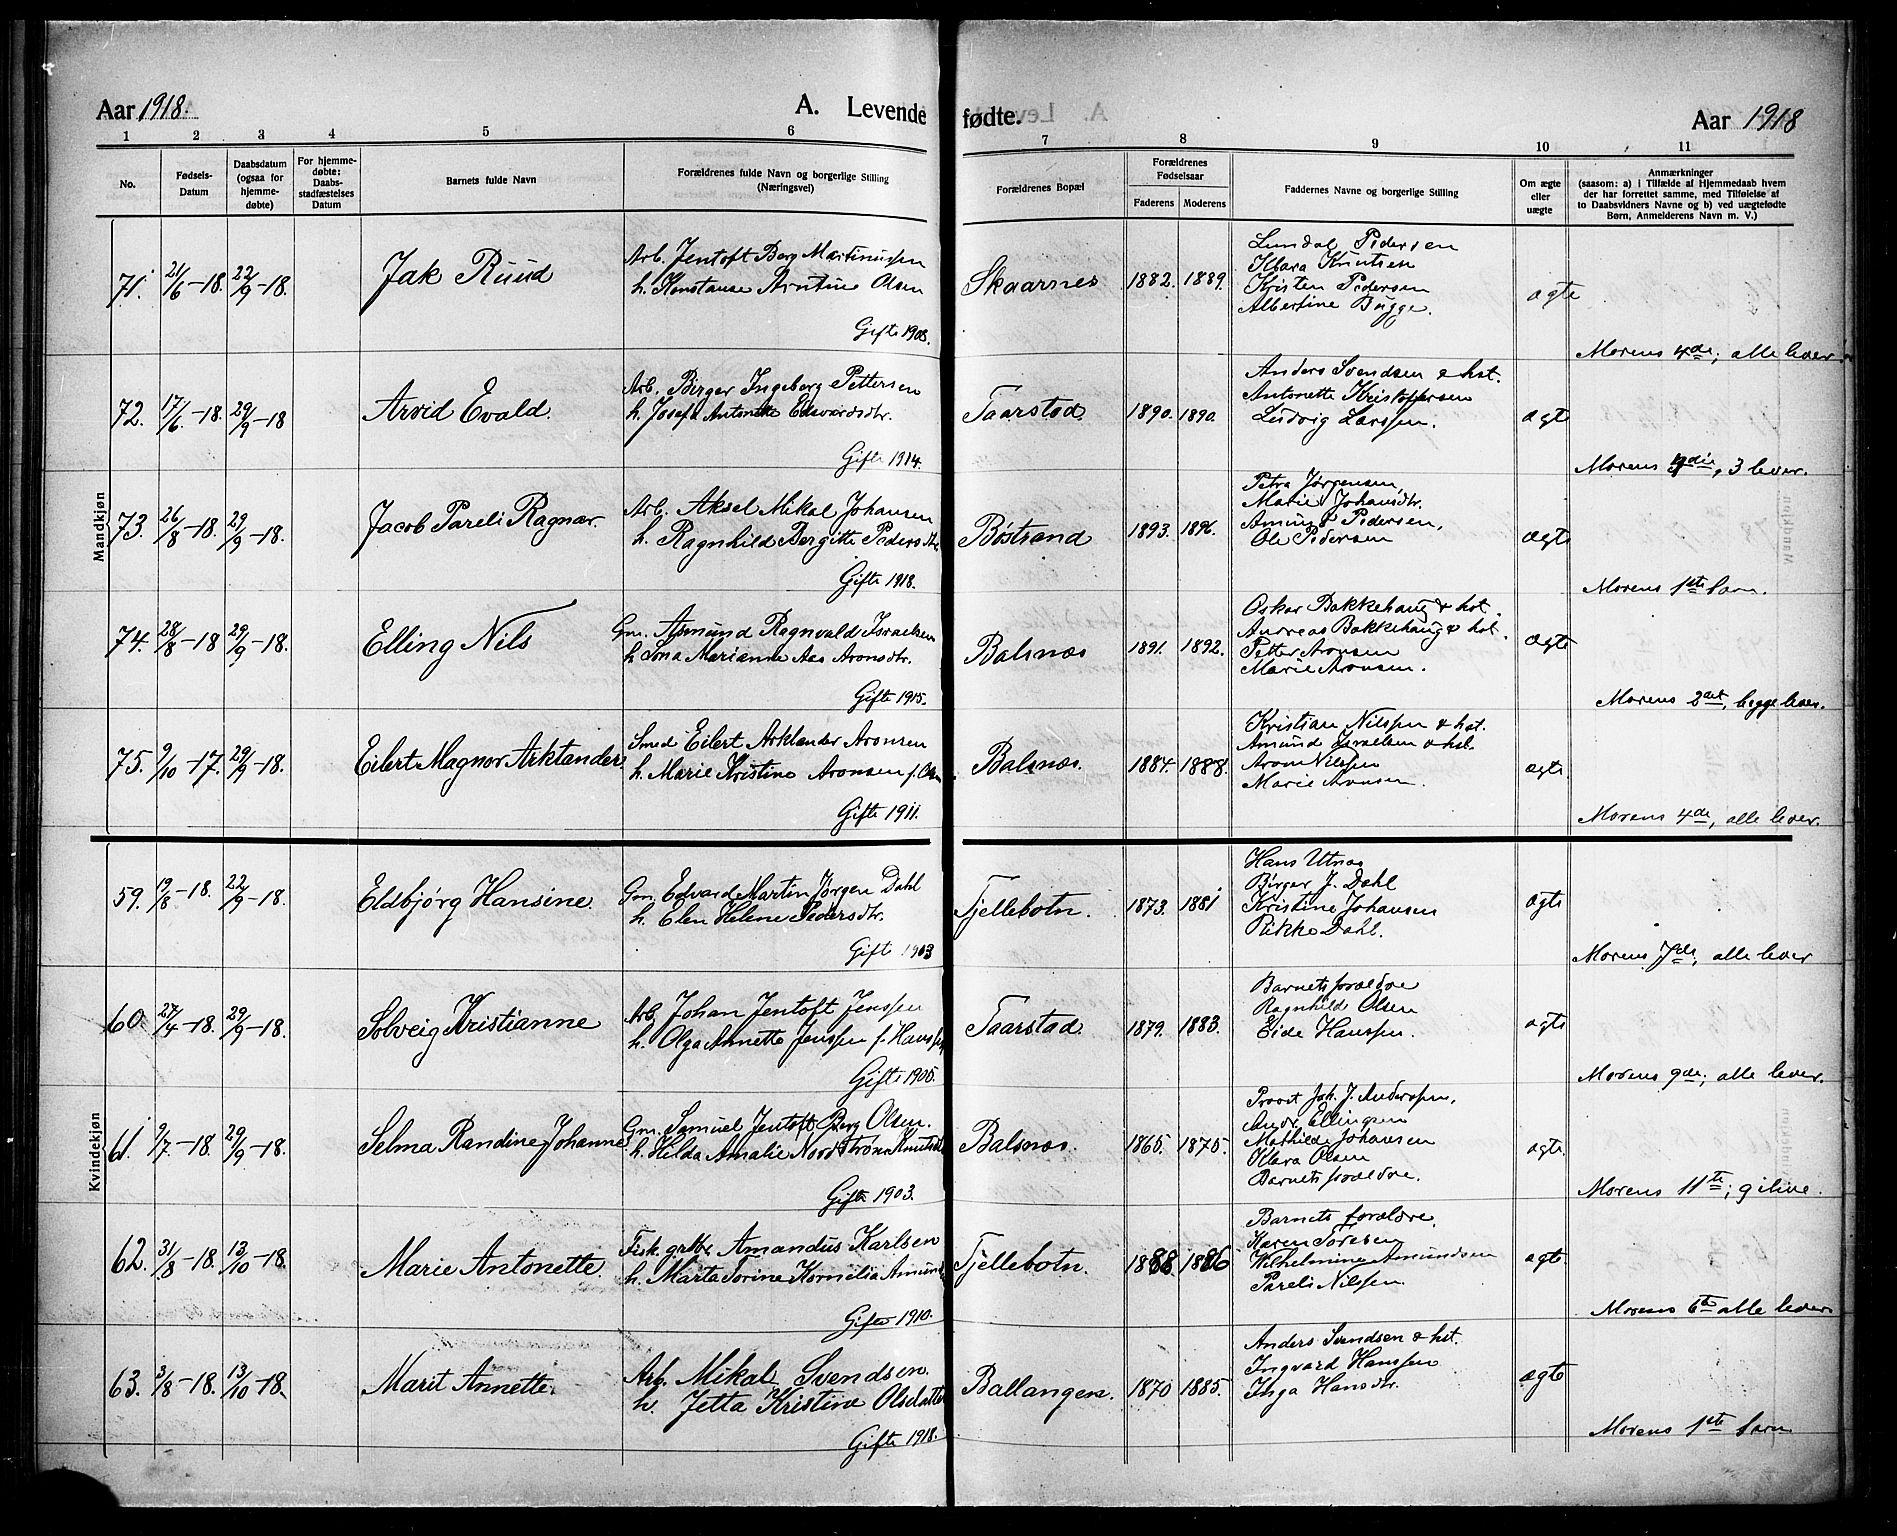 Aar 1918. A. Levende fødte. Aar 1918
1 2 3 4 5 6 7 8 9 10 11
No.
Fødsels-
Datum
Daabsdatum
(ogsaa for
hjemme-
døbte)
For hjemme-
døbte:
Daabs-
stadfæstelses
Datum
Barnets fulde Navn
Forældrenes fulde Navn og borgerlige Stilling
(Næringsvei)
Forældrenes Bopæl
Forældrenes
Fødselsaar
Faderens Moderens
Faddernes Navne og borgerlige Stilling
Om ægte
eller
uægte
Anmærkninger
(saasom: a) i Tilfælde af Hjemmedaab hvem
der har forrettet samme, med Tilføielse af
to Daabsvidners Navne og b) ved uægtefødte
Børn, Anmelderens Navn m. V.)
Mandkjøn
71. 21/6-18. 22/9-18. Jak Ruud
Arb. Jentoft Berg Martinussen
h. Konstanse Arntine Olsen
Gifte 1908.
Skaarnes 1882. 1889.
Lundal Pedersen
Klara Knutsen
Kristen Pedersen
Albertine Bugge.
ægte
Morens 4de; alle lever.
72. 17/6-18. 29/9-18 Arvid Evald.
Arb. Birger Ingeberg Pettersen
h. Josefa Antonette Edvardsdtr.
Gifte 1914.
Taarstad 1890. 1890.
Anders Svendsen & hst.
Antonette Kristoffersen
Ludvig Larssen.
ægte
Morens, 3 lever.
73. 26/8-18. 29/9-18. Jacob Pareli Ragnar.
Arb. Aksel Mikal Johansen
h. Ragnhild Bergitte Pedersdtr.
Gifte 1918.
Bøstrand 1893. 1896.
Petra Jørgensen,
Marie Johansdtr.
Amund Pedersen,
Ole Pedersen
ægte
Morens 1ste barn.
74. 28/8-18 29/9-18. Elling Nils
Gm. Asmund Ragnvald Israelsen
h. Lona Marianne Aas Aronsdtr.
Gifte 1915.
Balsnæs 1891. 1892.
Oskar Bakkehaug & hst.
Andreas Bakkehaug & hst.
Petter Aronsen
Marie Aronsen.
ægte
Morens 2det, begge lever.
75. 9/10-17. 29/9-18. Eilert Magnor Arktander
Smed Eilert Arktander Aronsen
h. Marie Kristine Aronsen f. Olsen
Gifte 1911.
Balsnæs. 1884. 1888.
Kristian Nilssen & hst.
Amund Israelsen & hst.
Aron Nilssen
Marie Aronsen.
ægte
Morens 4de, alle lever.
Kvindekjøn
59. 19/8-18. 22/9-18. Eldbjørg Hansine.
Gm. Edvard Martin Jørgen Dahl
h. Elen Helene Pedersdtr.
Gifte 1903
Fjellebotn. 1873. 1881
Hans Utnæs
Birger J. Dahl
Kristine Johansen
Rikke Dahl.
ægte
Morens 7de, alle lever
60. 27/4-18. 29/9-18. Solveig Kristianne
Arb. Johan Jentoft Jenssen
h. Olga Annette Jenssen f. Hanssen
Gifte 1905.
Taarstad 1879. 1883.
Barnets forældre
Ragnhild Olsen
Eide Hanssen.
ægte
Morens 9de; alle lever.
61. 9/7-18. 29/9-18. Selma Randine Johanne
Gm. Samuel Jentoft Berg Olsen.
h. Hilda Amalie Nordstrøm Knutsdtr.
Gifte 1903.
Balsnæs. 1865. 1875.
Provst Joh. J. Anderssen,
Andr. Ellingsen
Mathilde Johansen
Klara Olsen
Barnets forældre.
ægte
Morens 11te; 9 i live.
62. 31/8-18. 13/10-18. Marie Antonette.
Fisk. grbr. Amandus Karlsen
h. Marta Torine Kornelia Amunds
Gifte 1910.
Fjellebotn. 1888 1886
Barnets forældre.
Karen Toresen
Wilhelmine Amundsen
Pareli Nilssen.
ægte
Morens 6te alle lever
63. 3/8-18. 13/10-18. Marit Annette.
Arb. Mikal Svendsen.
h. Jetta Kristine Olsdatter
Gifte 1918.
Ballangen. 1870 1885.
Anders Svendsen & hst.
Ingvard Hanssen
Inga Hansdtr.
ægte
Morens 1ste barn